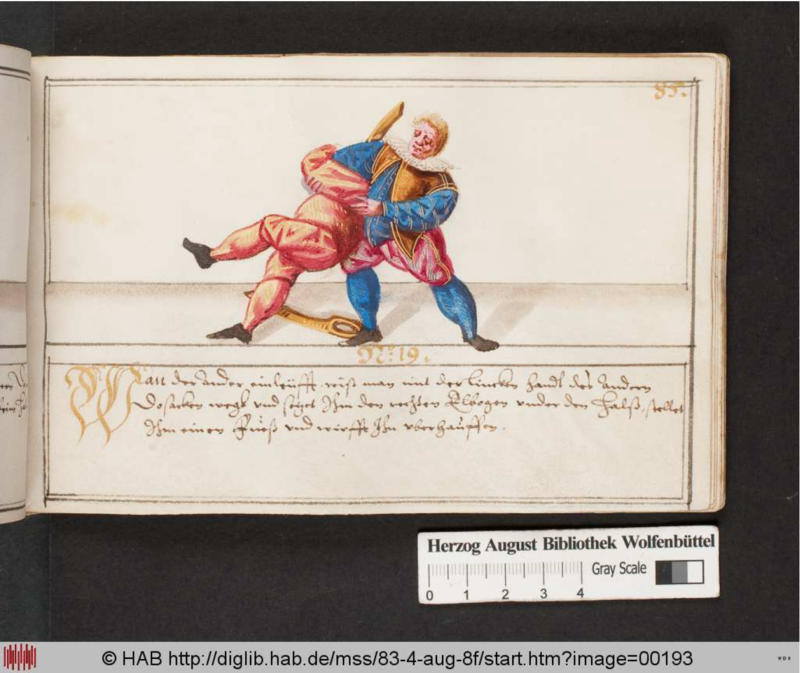 85.
No. 19.
Wan der Ander einleüfft, reist man mit der lincken handt des Andern
Dosacken wegk und setzet Ihm den rechten Elbogen under den Halß, stellet
Ihm einen Fueß und wirfft Ihn uberhauffen.
Herzog August Bibliothek Wolfenbüttel
0 1 2 3 4
Gray Scale
© HAB http://diglib.hab.de/mss/83-4-aug-8f/start.htm?image=00193